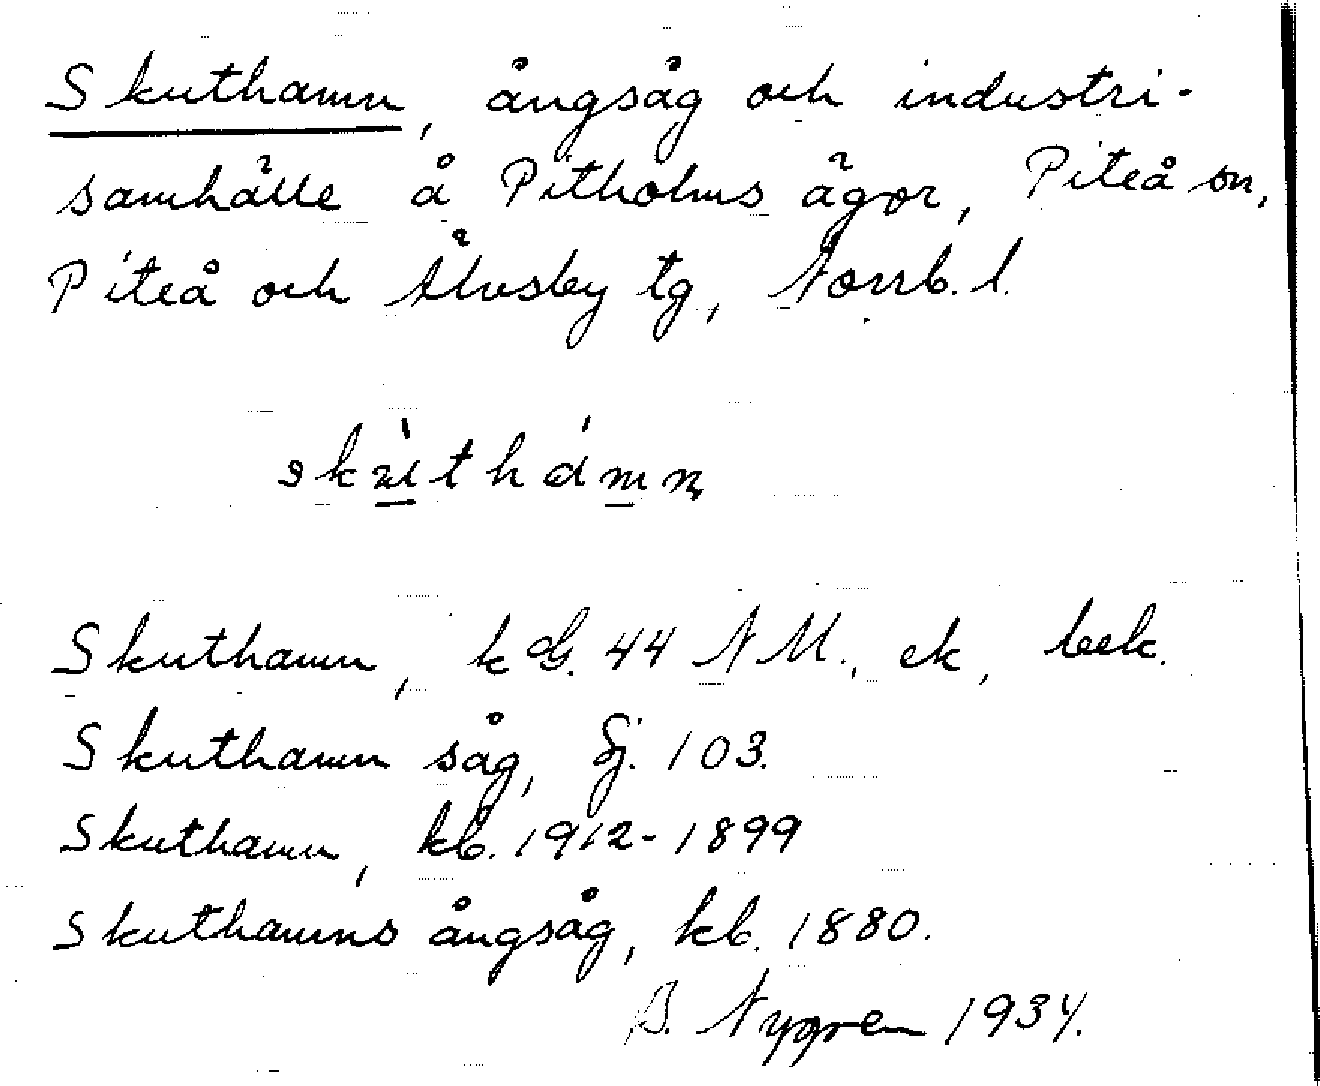 Skuthamn, ångsåg och industri-
samhälle å Pitholms ägor, Piteå sn,
Piteå och Älvsby tg, Norrb. l.
skùthámn
Skuthamn, k G. 44 NM., ek, bek.
Skuthamn såg, Sj. 103.
Skuthamn, kb. 1912-1899
Skuthamns ångsåg, kb. 1880.
B. Nygren 1934.